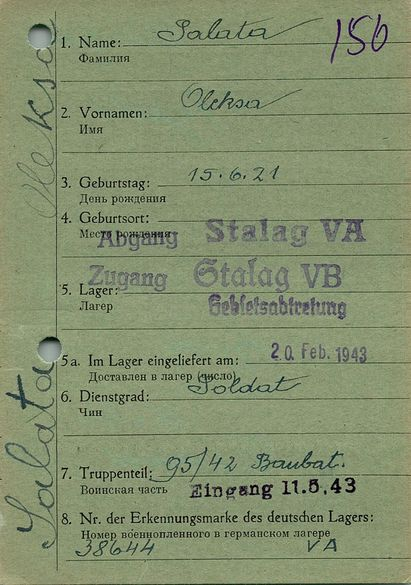 1. Name: Salata
Фамилия
156
2. Vornamen: Oleksa
Имя
3. Geburtstag: 15.6.21
День рождения
4. Geburtsort:
Место рождения
Abgang Stalag VA
Zugang Stalag VB
Gebietsabtretung
5. Lager:
Лагер
5a. Im Lager eingeliefert am: 20. Feb. 1943
Доставлен в лагер (число)
6. Dienstgrad: Soldat
Чин
7. Truppenteil: 95/42 Baubat.
Воинская часть Eingang 11.5.43
8. Nr. der Erkennungsmarke des deutschen Lagers:
Номер военнопленного в германском лагере
38644 VA
Salata Oleksa